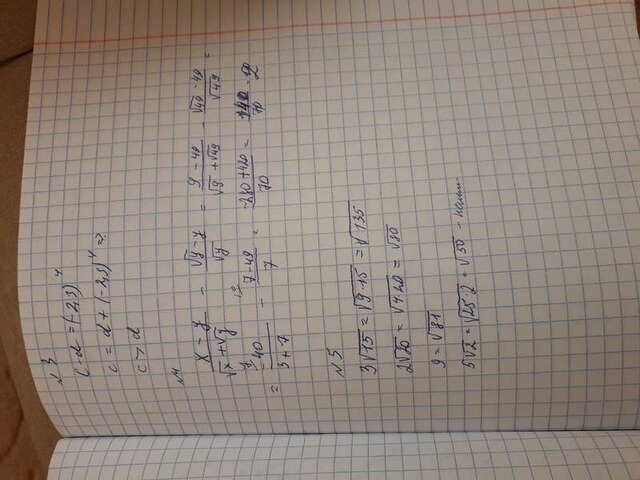 № 3
c - d = (-2,3)⁴
c = d + (-2,3)⁴ =>
c > d
№4
(x - y)/(√x + √y) - (√y - y)/√y = (9 - 49)/(√9 + √49) - (√49 - 49)/√49 =
= ⁷⁾ -40/(3 + 7) - ¹⁰⁾ (7 - 49)/7 = (-280 + 420)/70 = 140/70 = 2
№5
3√15 = √9·15 = √135
2√20 = √4·20 = √80
9 = √81
5√2 = √25·2 = √50 -